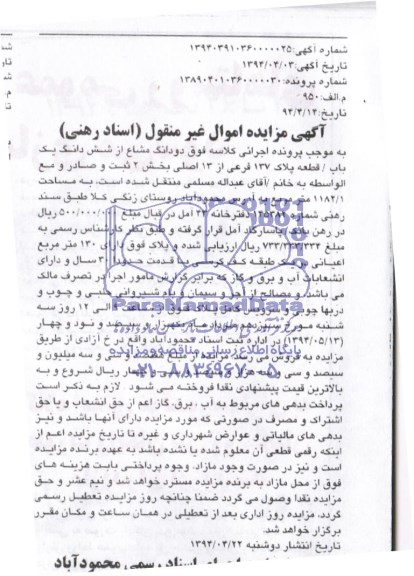 شماره آگهی: ۱۳۹۴۰۳۹۱۰۳۶۰۰۰۰۰۲۵
تاریخ آگهی: ۱۳۹۴/۰۴/۰۳
شماره پرونده: ۱۳۸۹۰۴۰۱۰۳۶۰۰۰۰۰۳۰
م.الف: ۹۵۰
تاریخ: ۹۴/۴/۱۲
آگهی مزایده اموال غیر منقول (اسناد رهنی)
به موجب پرونده اجرائی کلاسه فوق دودانگ مشاع از شش دانگ یک
باب / قطعه پلاک ۱۳۷ فرعی از ۱۳ اصلی بخش ۲ ثبت و صادر و مع
الواسطه به خانم /آقای عبداله مسلمی منتقل شده است، به مساحت
۱۱۸۲/۱ متر مربع به آدرس محمودآباد روستای زنگی کلا طبق سند
رهنی شماره دفترخانه ۲۴ آمل در قبال مبلغ ۵۰۰/۰۰۰/۰۰۰ ریال
در رهن بانک پاسارگاد آمل قرار گرفته و طبق نظر کارشناس رسمی به
مبلغ ۷۳۳/۳۳۳/۳۳۴ ریال ارزیابی شده و پلاک فوق دارای ۱۳۰ متر مربع
اعیانی یک طبقه کف کرسی با قدمت حدود ۳۰ سال و دارای
انشعابات آب و برق و گاز که برابر گزارش مامور اجرا در تصرف مالک
می باشد. و مصالح از آجر و سیمان و بام شیروانی حلبی و چوب و
دربها چوبی و سرویس از ساعت ۹ الی ۱۲ روز سه
شنبه مورخ سیزدهم مرداد ماه یکهزار و سیصد و نود و چهار
(۱۳۹۴/۰۵/۱۳) در اداره ثبت اسناد محمودآباد واقع در خ آزادی از طریق
مزایده به فروش می رسد. مزایده از مبلغ هفتصد و سی و سه میلیون و
سیصد و سی و سه هزار و سیصد و سی و چهار ریال شروع و به
بالاترین قیمت پیشنهادی نقدا فروخته می شود. لازم به ذکر است
پرداخت بدهی های مربوط به آب ، برق، گاز اعم از حق انشعاب و یا حق
اشتراک و مصرف در صورتی که مورد مزایده دارای آنها باشد و نیز
بدهی های مالیاتی و عوارض شهرداری و غیره تا تاریخ مزایده اعم از
اینکه رقمی قطعی آن معلوم شده یا نشده باشد به عهده برنده مزایده
است و نیز در صورت وجود مازاد، وجوه پرداختی بابت هزینه های
فوق از محل مازاد به برنده مزایده مسترد خواهد شد و نیم عشر و حق
مزایده نقدا وصول می گردد ضمنا چنانچه روز مزایده تعطیل رسمی
گردد، مزایده روز اداری بعد از تعطیلی در همان ساعت و مکان مقرر
برگزار خواهد شد.
تاریخ انتشار دوشنبه ۱۳۹۴/۰۴/۲۲
اسناد رسمی محمودآباد
ParsNamadData
پایگاه اطلاع رسانی مناقصه و مزایده
۰۲۱-۸۸۳۴۹۶۷۰-۵